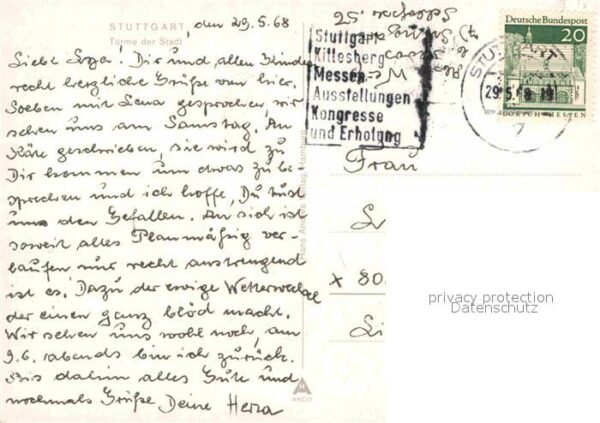 STUTTGART, den 29.5.68
Türme der Stadt
Liebe Enza! Dir und allen Kindern
recht herzliche Grüße von hier.
Soeben mit Lena gesprochen, wir
sehen uns am Samstag. An
Käte geschrieben, sie wird zu
Dir kommen um etwas zu be-
sprechen und ich hoffe, Du tust
uns den Gefallen. An sich ist
soweit alles Planmäßig ver-
laufen nur recht anstrengend
ist es. Dazu der ewige Wetterwechsel
der einen ganz blöd macht.
Wir sehen uns wohl noch, am
9.6. abends bin ich zurück.
Bis dahin alles Gute und
nochmals Grüße Deine Herza
ARCO
Stuttgart
Killesberg
Messen
Ausstellungen
Kongresse
und Erholung
Deutsche Bundespost
20
STUTTGART
29.5.68
7
Frau
x 80
privacy protection
Datenschutz